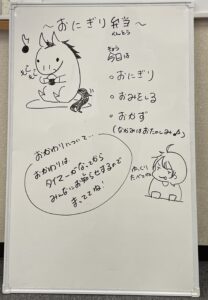 ～おにぎり弁当～
べんとう
きょう
今日は
○おにぎり
○おみそしる
○おかず
(なかみはおたのしみ♪)
おかわりについて…
おかわりは
タイマーがなってから
みんなにお知らせするので
まっててね！
ゆっくり
たべてね